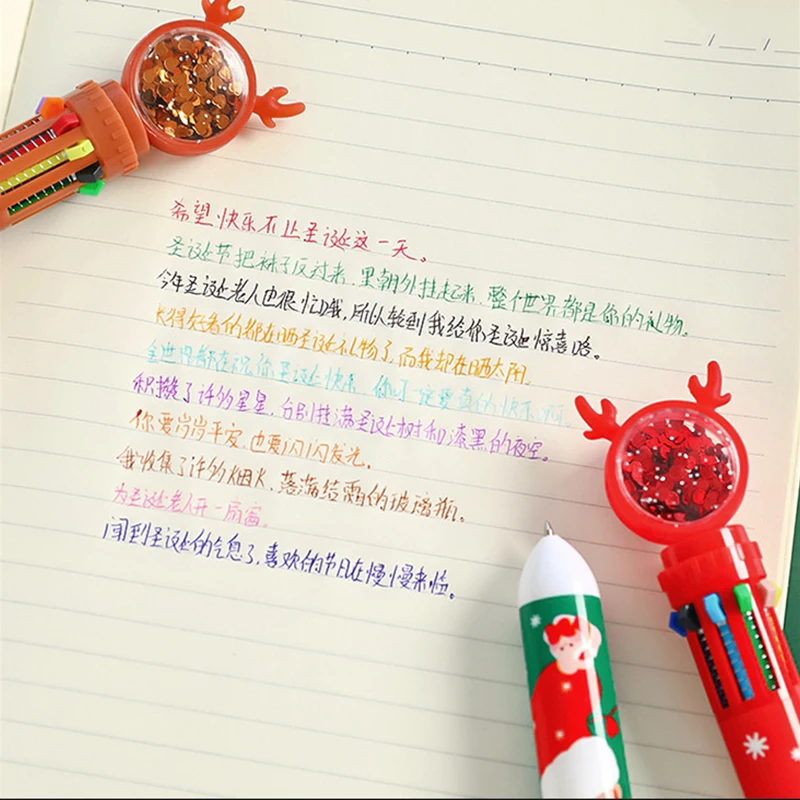 希望快乐不止圣诞这一天。
圣诞节把袜子反过来,里朝外挂起来,整个世界都是你的礼物。
今年圣诞老人也很忙哦,所以轮到我给你圣诞惊喜咯。
长得好看的都在晒圣诞礼物了,而我却在晒太阳
全世界都在祝你圣诞快乐,你一定要真的快乐啊。
积攒了许多星星,分别挂满圣诞树和漆黑的夜空。
你要岁岁平安,也要闪闪发光。
我收集了许多烟火,落满结霜的玻璃瓶。
为圣诞老人开一扇窗。
闻到圣诞的气息了,喜欢的节日在慢慢来临。